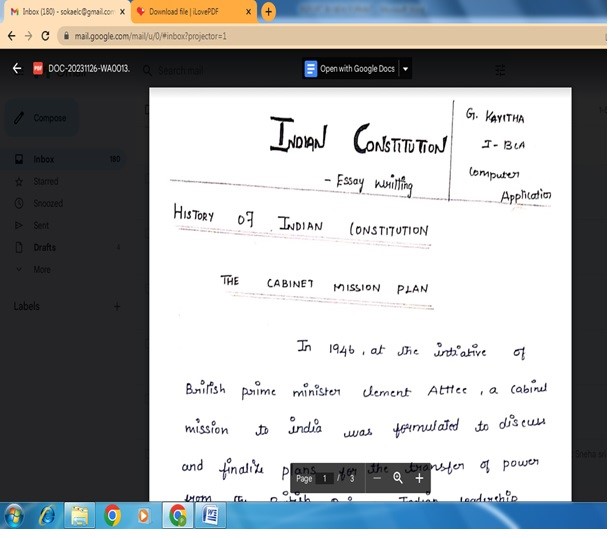 Inbox (180) - sokaelc@gmail.com
Download file | iLovePDF
mail.google.com/mail/u/0/#inbox?projector=1
PDF DOC-20231126-WA0013.
Open with Google Docs
Compose
Inbox 180
Starred
Snoozed
Sent
Drafts
More
Labels
G. KAVITHA
I - BCA
Computer
Application
INDIAN CONSTITUTION
- Essay writting
HISTORY OF INDIAN CONSTITUTION
THE CABINET MISSION PLAN
In 1946, at the intiative of
British prime minister clement Attlee, a cabinet
mission to india was formulated to discuss
and finalize plans for the transfer of power
from the British Indian leadership
Page 1 / 3